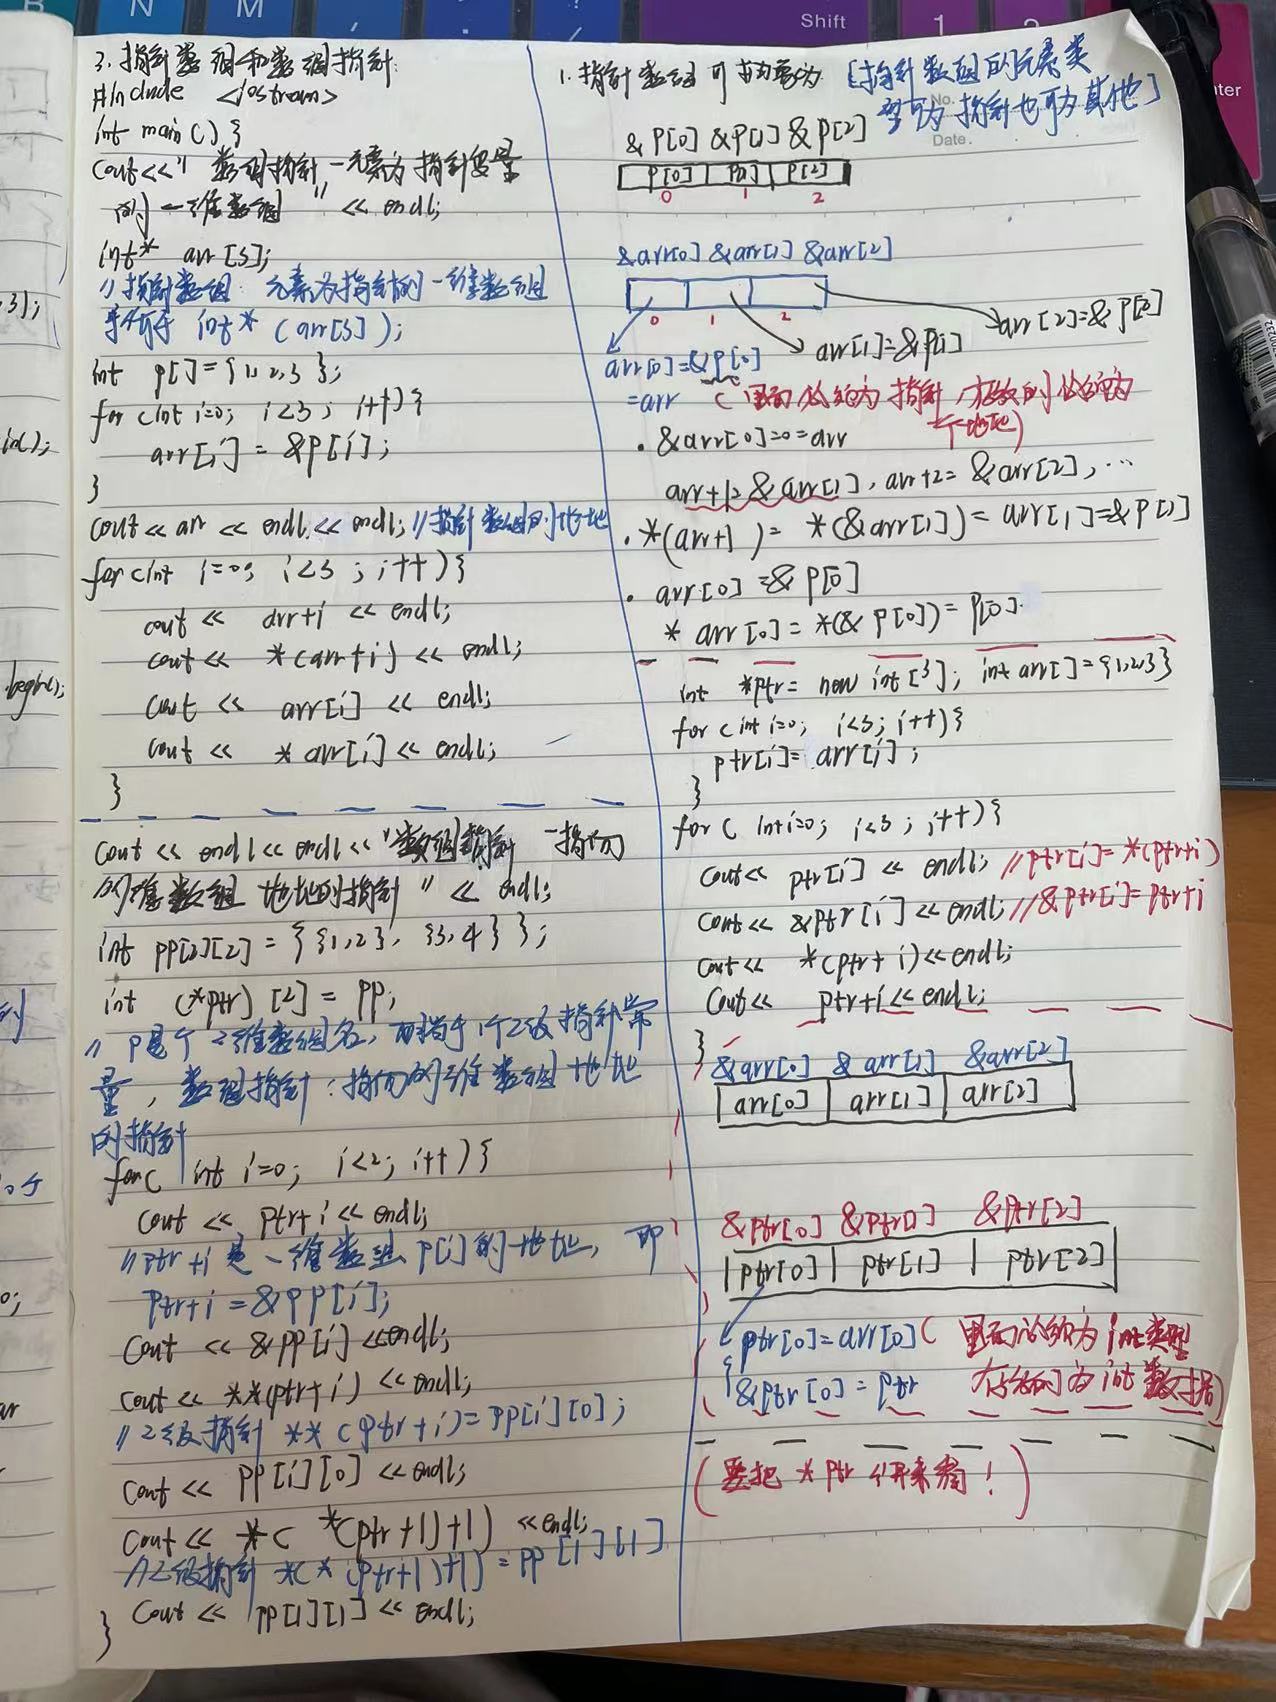 3. 指针数组和数组指针:
#include <iostream>
int main() {
cout<<" 数组指针一元素为指针变量
的一维数组 " << endl;
int* arr[3];
// 指针数组: 元素为指针的一维数组
等价于 int* (arr[3]);
int p[]={1,2,3 };
for (int i=0; i<3; i++){
arr[i] = &p[i];
}
cout << arr << endl << endl; //指针数组的地址
for(int i=0; i<3 ; i++){
cout << arr+i << endl;
cout << *(arr+i) << endl;
cout << arr[i] << endl;
cout << * arr[i] << endl;
}
cout << endl<< endl<< "数组指针 一指向
的维数组 地址的指针 " << endl;
int pp[2][2] = { {1,2}, {3,4} };
int (*ptr) [2] = pp;
// P是个 2维数组名, 相当于1个2级指针常
量, 数组指针: 指向的维数组地址
的指针
for( int i=0; i<2; i++){
cout << ptr+i << endl;
// ptr+i 是一维数组 p[i]的地址, 即
ptr+i = &pp[i];
cout << &pp[i] <<endl;
cout << **(ptr+i) << endl;
// 2级指针 **(ptr+i)=pp[i][0];
cout << pp[i][0] <<endl;
cout << *( *(ptr+1)+1) <<endl;
//2级指针 *(*(ptr+1)+1) = pp[1][1]
cout << pp[1][1] << endl;
}
1. 指针数组 [指针数组的元素类
型可为 指针也可为 其他]
No.
Date.
&p[0] &p[1] &p[2]
p[0] p[1] p[2]
0 1 2
&arr[0] &arr[1] &arr[2]
0 1 2
arr[0]=&p[0] arr[1]=&p[1] arr[2]=&p[2]
=arr ( 里面必须为 指针, 存放的必须为
个地址)
· &arr[0]=0=arr
arr+1=&arr[1], arr+2= &arr[2], …
· *(arr+1) = *(&arr[1])= arr[1]=&p[1]
· arr[0] =&p[0]
* arr[0] = *(&p[0])= p[0].
int *ptr= new int[3]; int arr[]={1,2,3}
for (int i=0; i<3; i++){
ptr[i]= arr[i];
}
for( int i=0; i<3; i++){
cout<< ptr[i] << endl; //ptr[i]= *(ptr+i)
cout<< &ptr[i] << endl; //&ptr[i]=ptr+i
cout<< *(ptr+i)<<endl;
cout<< ptr+i << endl;
}
&arr[0] & arr[1] &arr[2]
arr[0] arr[1] arr[2]
&ptr[0] &ptr[1] &ptr[2]
ptr[0] ptr[1] ptr[2]
ptr[0]=arr[0] ( 里面必须为 int类型
&ptr[0] = ptr 存放的为 int 数据)
(要把 *ptr 分开来看!)
Shift